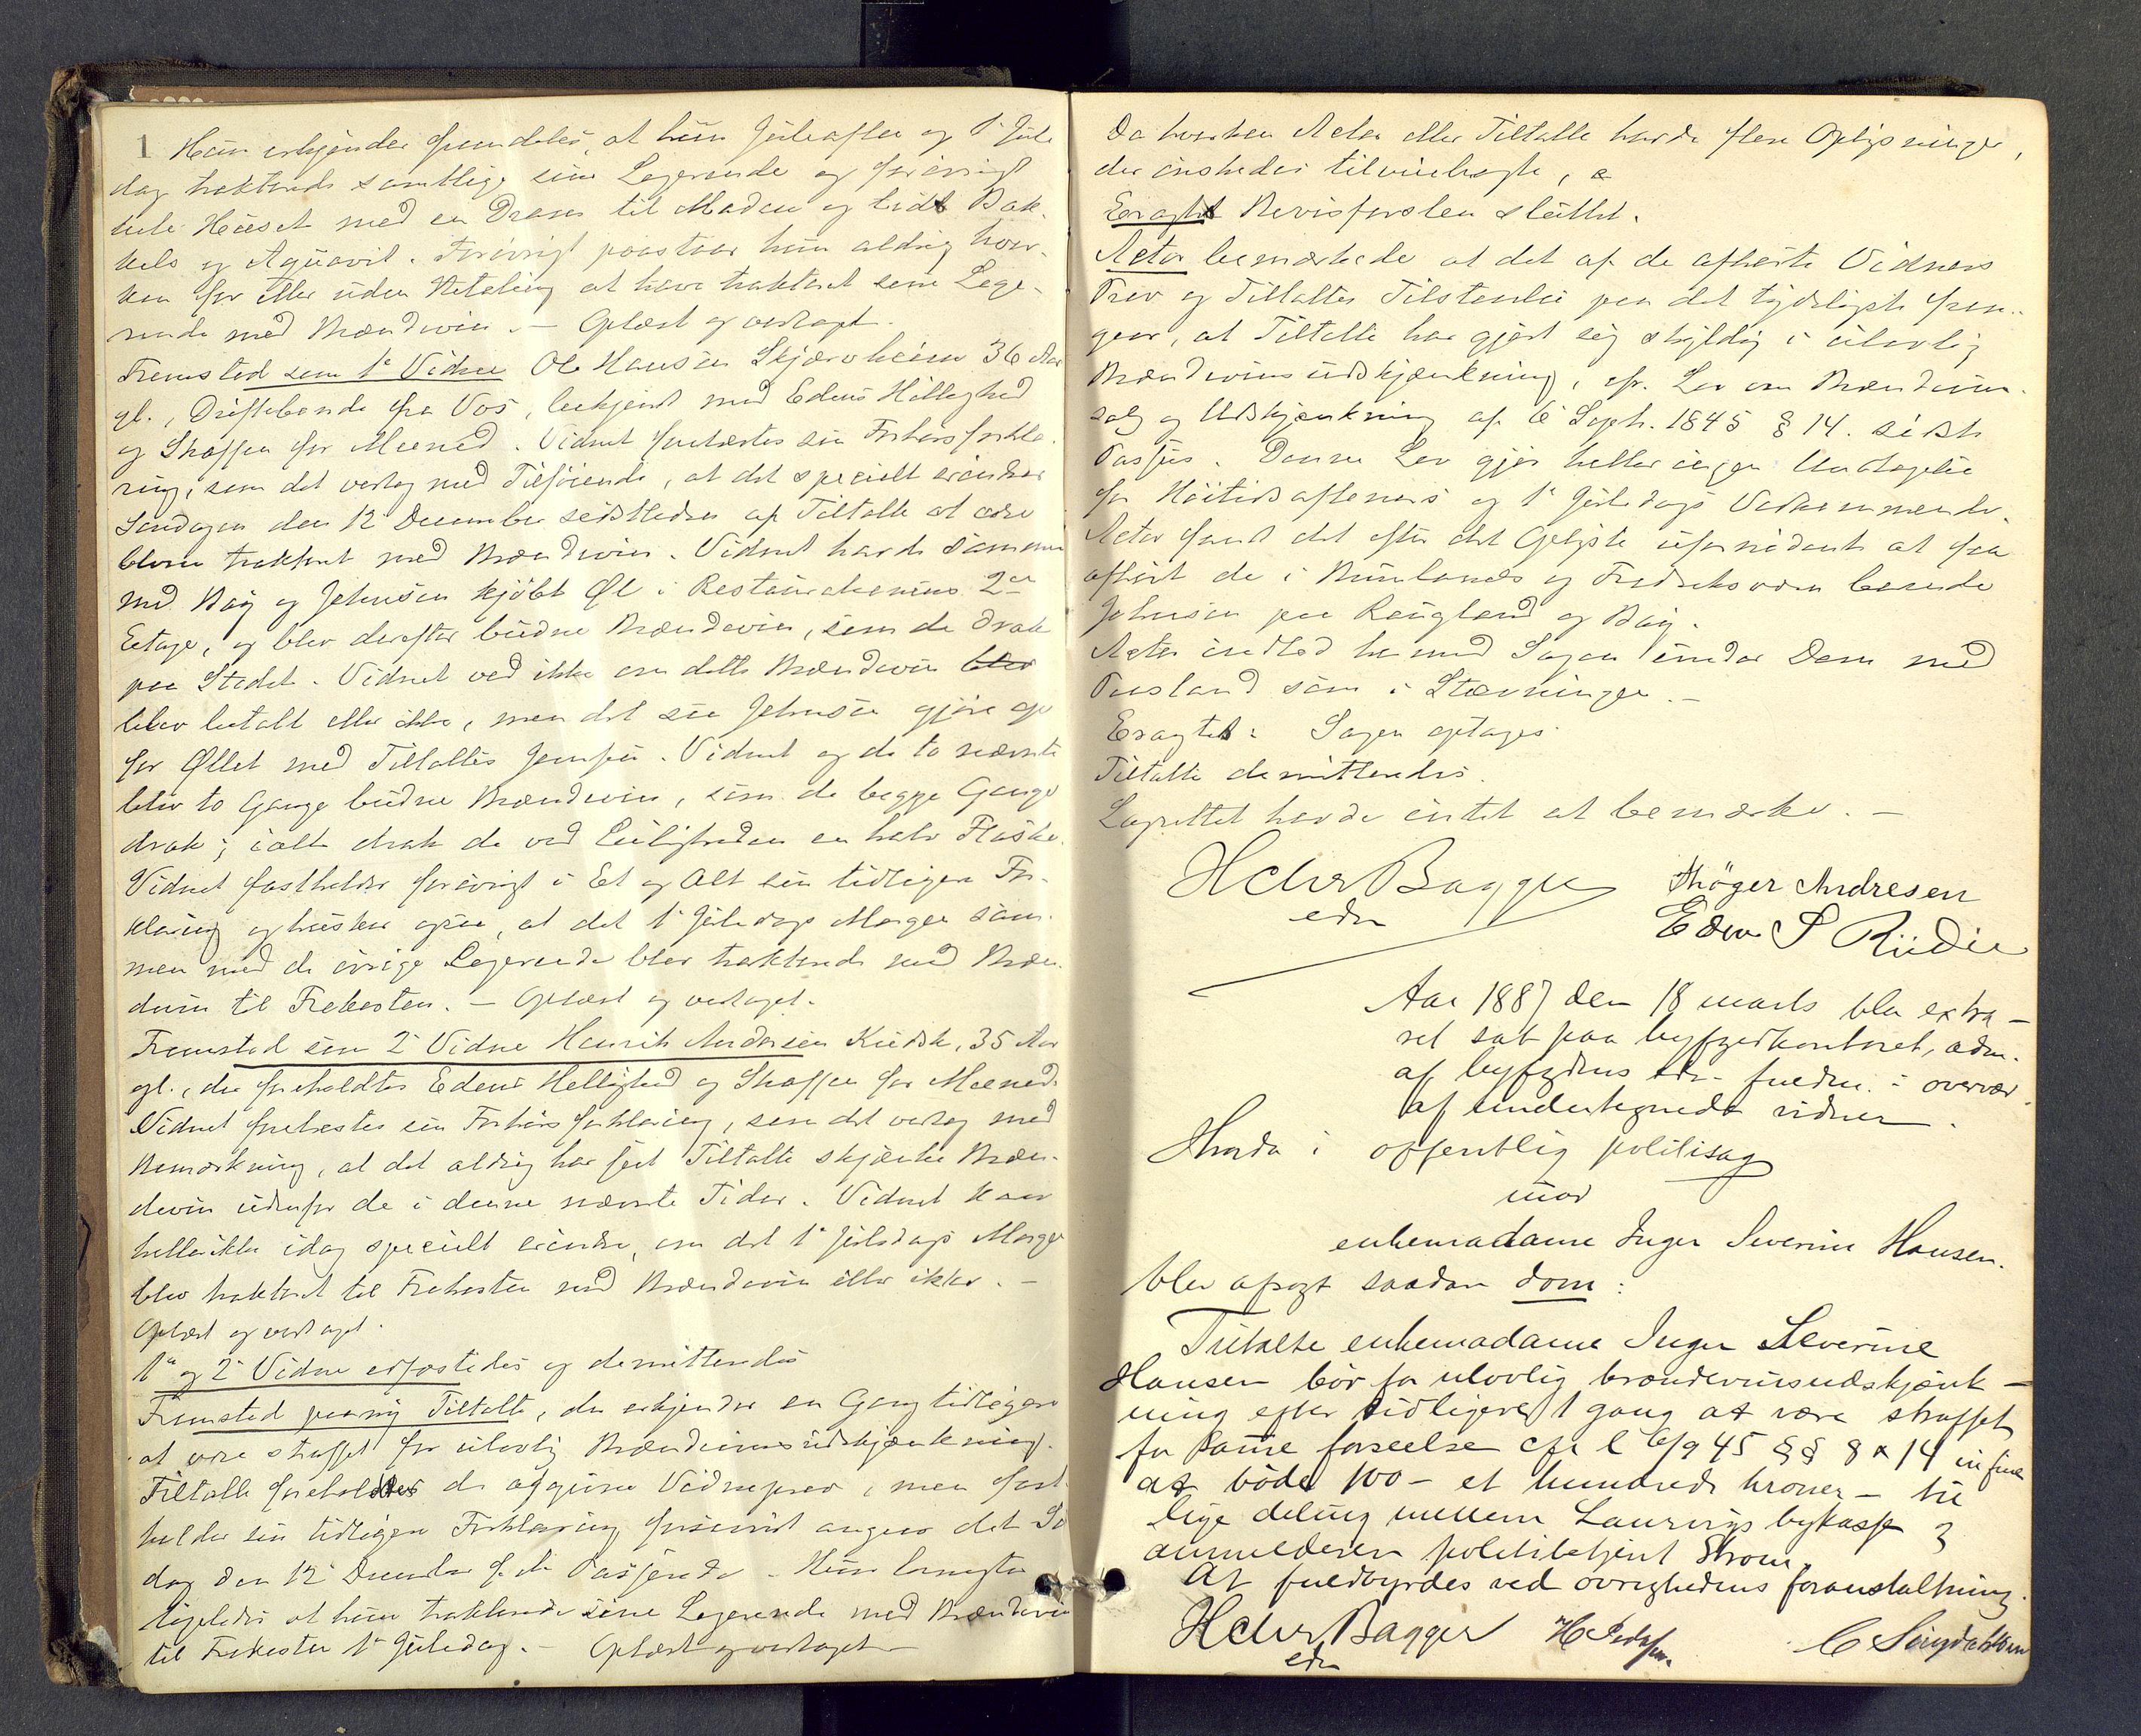 1
Hun erkjender fremdeles, at hun Juleaften og 1ste Jule
dag trakterede samtlige sine Logerende og forøvrigt
hele Huset med en Dram til Maden og lidt Bak-
kels og Aquavit. Forøvrigt paastaar hun aldrig hver-
ken for eller uden Betaling at have trakteret sine Loge-
rende med Brændevin. – Oplæst og vedtaget.
Fremstod som 1ste Vidne Ole Hansen Skjærvheim 36 Aar
gl., Driftebonde fra Vos, bekjendt med Edens Hellighed
og Straffen for Meened. Vidnet forelæstes sin Forhørsforkla-
ring, som det vedtog med Tilføiende, at det specielt erindrer
Søndagen den 12 December sidstleden af Tiltalte at være
bleven trakteret med Brændevin. Vidnet havde sammen
med Bøy og Johnsen kjøbt Øl i Restaurationens 2den
Etage, og blev derefter budne Brændevin, som de drak
paa Stedet. Vidnet ved ikke om dette Brændevin blev
blev betalt eller ikke, men det saa Johnsen gjøre op
for Øllet med Tiltaltes Jomfru. Vidnet og de to nævnte
blev to Gange budne Brændevin, som de begge Gange
drak; ialt drak de ved Leiligheden en halv Flaske.
Vidnet fastholder forøvrigt i Et og Alt sin tidligere For-
klaring og husker ogsaa, at det 1ste Juledags Morgen sam-
men med de øvrige Logerende blev trakterede med Bræn-
devin til Frokosten. – Oplæst og vedtaget.
Fremstod som 2det Vidne Henrik Andersen 35 Aar
gl., der foreholdtes Edens Hellighed og Straffen for Meened.
Vidnet forelæstes sin Forhørsforklaring, som det vedtog med
Bemærkning, at det aldrig har seet Tiltalte skjænke Bræn-
devin udenfor de i denne nævnte Tider. Vidnet kan
heller ikke idag specielt erindre, om det 1ste Juledags Morgen
blev trakteret til Frokosten med Brændevin eller ikke. –
Oplæst og vedtaget.
1ste og 2det Vidne edfæstedes og demitteredes
Fremstod paany Tiltalte, der erkjender en Gang tidligere
at være straffet for ulovlig Brændevinsudskjænkning.
Tiltalte foreholdtes de afgivne Vidneprov, men fast-
holder sin tidligere Forklaring forsaavidt angaar det Søn
dag den 12 December f. A. Passerede. Hun benegter
ligeledes at hun trakterede sine Logerende med Brændevin
til Frokosten 1ste Juledag. – Oplæst og vedtaget –
Da hverken Actor eller Tiltalte havde flere Oplysninger,
der ønskedes tilveiebragte,
Eragtet Bevisførslen sluttet.
Actor bemærkede at det af de afhørte Vidners
Prov og Tiltaltes Tilstaaelse paa det tydeligste frem-
gaar, at Tiltalte har gjort sig skyldig i ulovlig
Brændevinsudskjænkning, cfr. Lov om Brændevins-
salg og Udskjænkning af 6 Septb. 1845 § 14. sidste
Passus. Denne Lov gjør heller ingen Undtagelse
for Høitidsaftenens og 1ste Juledags Vedkommende.
Actor fandt det efter det Oplyste ufornødent at faa
afhørt de i Brunlanæs og Fredriksværn boende
Johnsen paa Raugland og Bøy.
Actor indlod hermed Sagen under Dom med
Paastand som i Stævningen. –
Eragtet: Sagen optages.
Tiltalte demitteredes.
Lagrettet havde intet at bemærke. –
H Chr Bagger
edr
Thøger Andresen
Edw S Rüdie
Aar 1887 den 18 marts blev extra-
ret sat paa byfogedkontoret, adm.
af byfogdens edr. fuldm. i overvær
af undertegnede vidner.
Hvorda i offentlig politisag
mod
enkemadame Inger Severine Hansen.
blev afsagt saadan dom:
Tiltalte enkemadame Inger Severine
Hansen bør for ulovlig brændevinsudskjænk-
ning efter tidligere 1 gang at være straffet
for samme forseelse cfr l 6/9 45 §§ 8 & 14 in fine
at bøde 100 – et hundrede kroner – til
lige deling mellem Laurvigs bykasse og
anmelderen politibetjent Strøm.
At fuldbyrdes ved øvrighedens foranstaltning.
H Chr Bagger
edr
H Pedersen